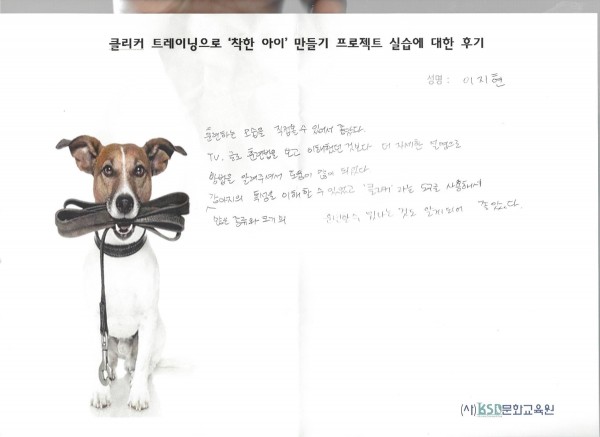 클리커 트레이닝으로 '착한 아이' 만들기 프로젝트 실습에 대한 후기
성명 : 이지현
훈련하는 모습을 직접볼수 있어서 좋았다.
TV, 글로 훈련법을 보고 이해했던 것보다 더 자세한 설명으로
방법을 알려주셔서 도움이 많이 되었다
강아지의 특성을 이해할 수 있었고 '클리커' 라는 도구를 사용해서
같은 종류와 크기의 수 있다는 것도 알게되어 좋았다.
(사)KSD문화교육원